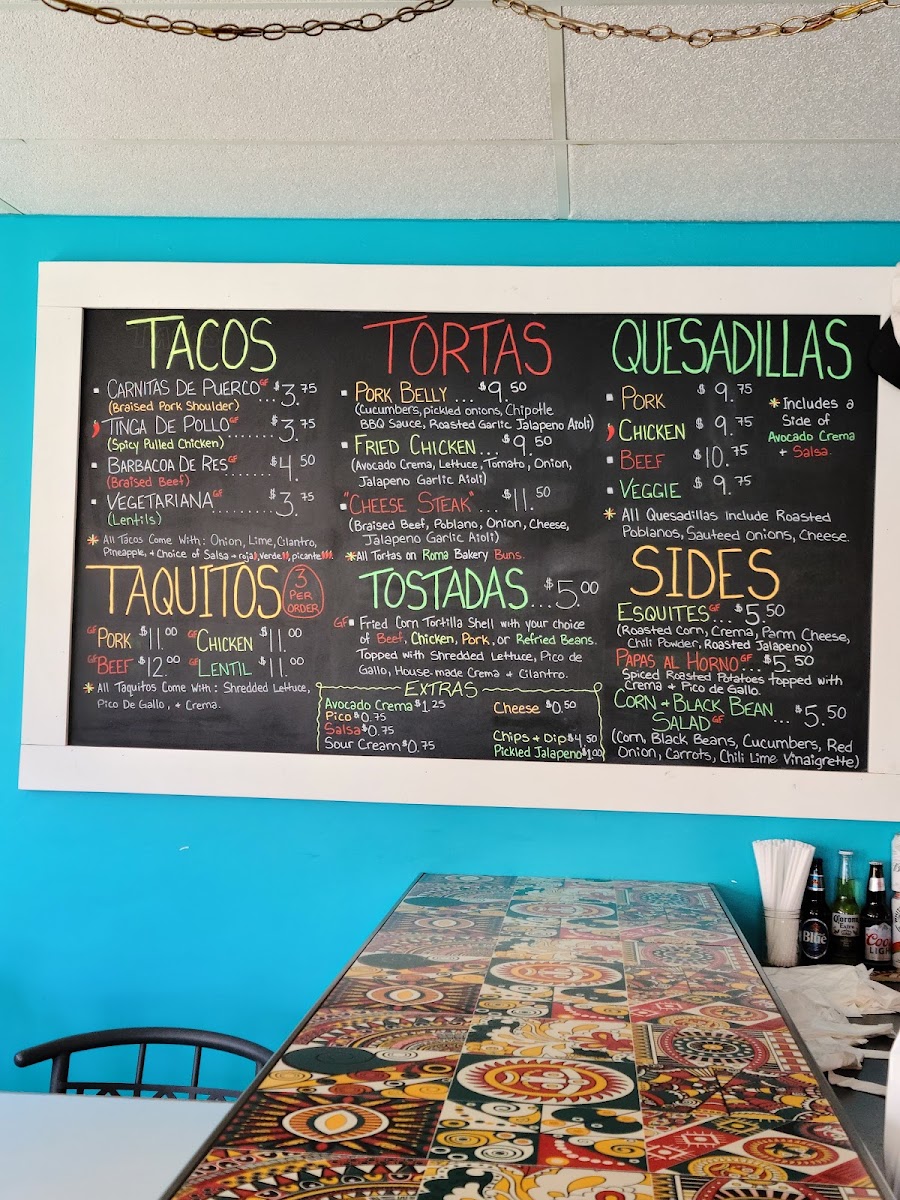 TACOS
CARNITAS DE PUERCO GF ... $3.75
(Braised Pork Shoulder)
TINGA DE POLLO GF ....... $3.75
(Spicy Pulled Chicken)
BARBACOA DE RES GF ....... $4.50
(Braised Beef)
VEGETARIANA GF ........ $3.75
(Lentils)
* All Tacos Come With: Onion, Lime, Cilantro,
Pineapple, + Choice of Salsa - roja, verde, picante
TAQUITOS
3
PER
ORDER
GF PORK $11.00 GF CHICKEN $11.00
GF BEEF $12.00 GF LENTIL $11.00
* All Taquitos Come With: Shredded Lettuce,
Pico De Gallo, + Crema.
TORTAS
PORK BELLY ... $9.50
(Cucumbers, pickled onions, Chipotle
BBQ Sauce, Roasted Garlic Jalapeno Aioli)
FRIED CHICKEN... $9.50
(Avocado Crema, Lettuce, Tomato, Onion,
Jalapeno Garlic Aioli)
"CHEESE STEAK" .... $11.50
(Braised Beef, Poblano, Onion, Cheese,
Jalapeno Garlic Aioli)
* All Tortas on Roma Bakery Buns.
TOSTADAS ... $5.00
GF Fried Corn Tortilla Shell with your choice
of Beef, Chicken, Pork, or Refried Beans.
Topped with Shredded Lettuce, Pico de
Gallo, House-made Crema + Cilantro.
EXTRAS
Avocado Crema $1.25
Pico $0.75
Salsa $0.75
Sour Cream $0.75
Cheese $0.50
Chips + Dip $4.50
Pickled Jalapeno $1.00
QUESADILLAS
PORK $9.75
CHICKEN $9.75
BEEF $10.75
VEGGIE $9.75
* Includes a
Side of
Avocado Crema
+ Salsa.
* All Quesadillas Include Roasted
Poblanos, Sauteed Onions, Cheese.
SIDES
ESQUITES GF ... $5.50
(Roasted Corn, Crema, Parm Cheese,
Chili Powder, Roasted Jalapeno)
PAPAS AL HORNO GF ... $5.50
Spiced Roasted Potatoes topped with
Crema + Pico de Gallo.
CORN + BLACK BEAN
SALAD GF ... $5.50
(Corn, Black Beans, Cucumbers, Red
Onion, Carrots, Chili Lime Vinaigrette)
Blue
Corona
Extra
Coors
LIGHT